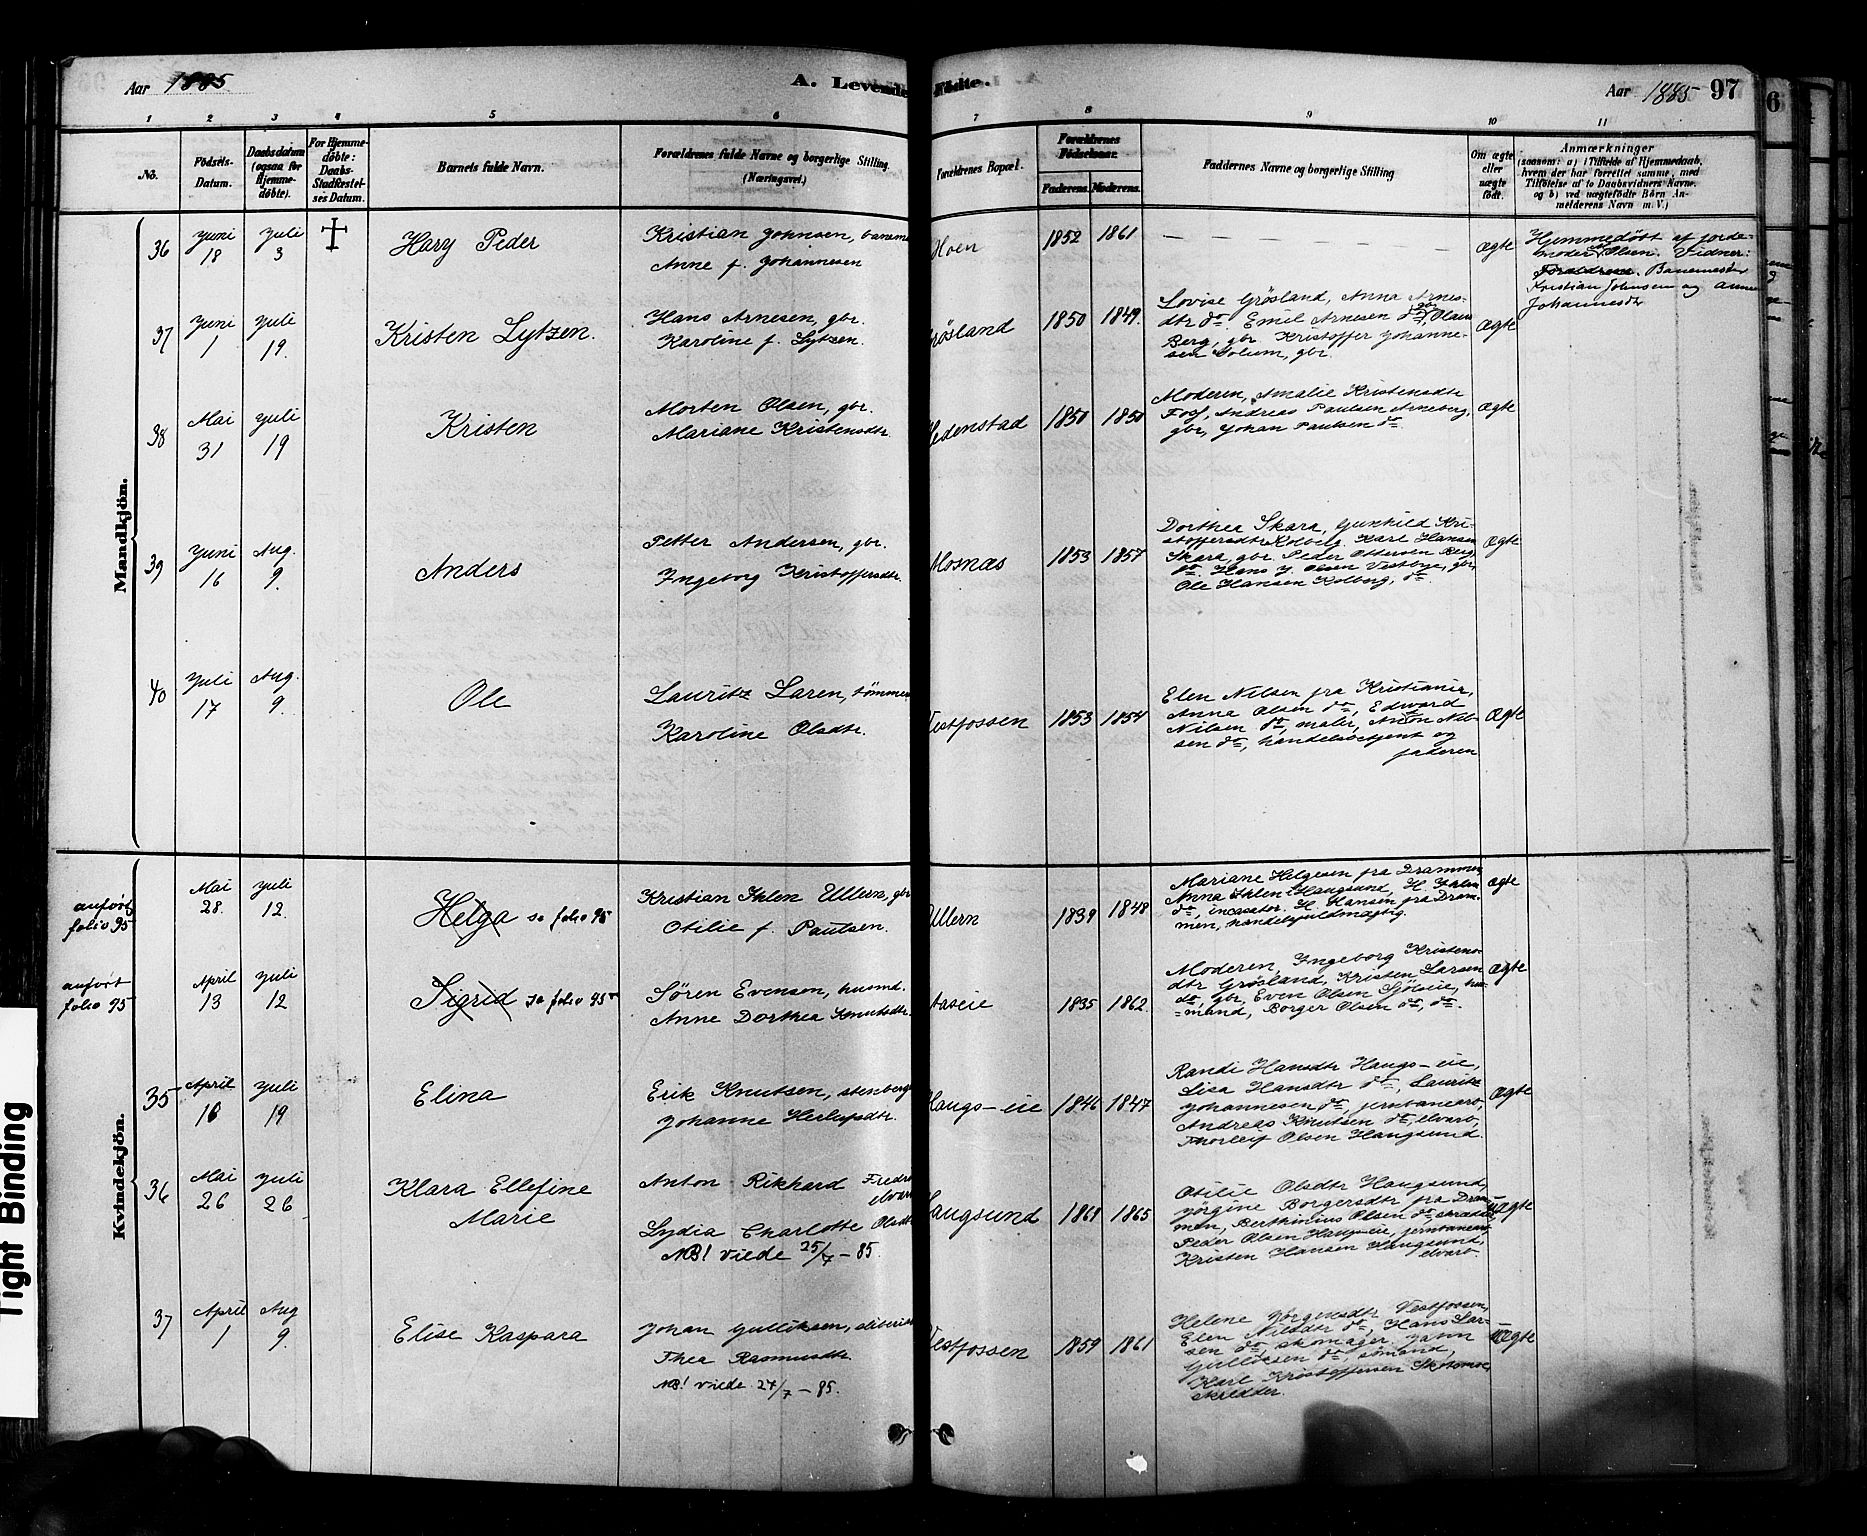 Aar 1885
A. Levende Fødte.
Aar 1885 97
1 2 3 4 5 6 7 8 9 10 11
No.
Fødsels-Datum.
Daabsdatum (ogsaa for Hjemmedøbte).
For Hjemmedøbte: Daabs-Stadfæstelses Datum.
Barnets fulde Navn.
Forældrenes fulde Navne og borgerlige Stilling. (Næringsvei.)
Forældrenes Bopæl.
Forældrenes Fødselsaar.
Faderens. Moderens.
Faddernes Navne og borgerlige Stilling
Om ægte eller uægte født.
Anmærkninger
(saasom: a) i Tilfælde af Hjemmedaab,
hvem der har forrettet samme, med
Tilføielse af to Daabsvidners Navne.
og b) ved uægtefødte Børn An-
melderens Navn m. V.)
Mandkjøn.
36 Juni 18 Juli 3 Hary Peder
Kristian Johnsen, baneme
Anne f. Johannesen
Hoen 1852 1861 ægte
Hjemmedøbt af jorde-
moder Olsen. Vidner:
Forældrene. Banemester
Kristian Johnsen og Anne
Johannesdtr
37 Juni 1 Juli 19. Kristen Lytzen.
Hans Arnesen, gbr.
Karoline f. Lytzen.
Grøsland 1850 1849.
Lovise Grøsland, Anna Arnes-
dtr do. Emil Arnesen do, Olaus
Berg, gbr. Kristoffer Johanne-
sen Solum, gbr.
ægte
38 Mai 31 Juli 19 Kristen
Morten Olsen, gbr.
Mariane Kristensdtr.
Hedenstad 1850 1850
Moderen, Amalie Kristensdtr
Fosf, Andreas Paulsen Arneberg,
gbr, Johan Paulsen do
ægte
39 Juni 16 Aug. 9. Anders
Petter Andersen, gbr.
Ingeborg Kristoffersdtr.
Mosnæs 1853 1857
Dorthea Skara, Gunhild Kri-
stoffersdtr Kolberg, Karl Hansen
Skara, gbr. Peder Ottersen Berg,
do. Hans J. Olsen Vestbye, gbr,
Ole Hansen Kolberg, do.
ægte
40 Juli 17 Aug. 9. Ole
Lauritz Laren, tømmer
Karoline Olsdtr.
Vestfossen 1853 1854
Elen Nilsen fra Kristiania,
Anna Olsen do, Edward
Nilsen do, maler, Anton Nil-
sen do, handelsbetjent og
faderen
ægte
Kvindekjøn.
anført folio 95 Mai 28. Juli 12. Helga se folio 95
Kristian Ihlen Ullern, gbr
Otilie f. Paulsen.
Ullern 1839 1848
Mariane Helgesen fra Drammen
Anna Ihlen Haugsund, H. Ihlen
do, incasator. H. Hansen fra Dram-
men, handelsfuldmægtig.
ægte
anført folio 95 April 13 Juli 12 Sigrid se folio 95
Søren Evensen, husmd.
Anne Dorthea Knutsdtr.
Aaseie 1835 1862.
Moderen, Ingeborg Kristens-
dtr Grøsland, Kristen Larsen
do, gbr, Even Olsen Sjöleie, hus-
mand, Borger Olsen do, do.
ægte
35 April 16 Juli 19 Elina
Erik Knutsen, stenberg
Johanne Herlufsdtr.
Haugs-eie 1846 1847
Randi Hansdtr Haugs-eie,
Lisa Hansdtr do, Lauritz
Johannesen do, jernbanearb,
Andreas Knutsen do, elvarb,
Thorleif Olsen Haugsund.
ægte
36 Mai 26 Juli 26 Klara Ellefine
Marie
Anton Rikhard Fredri
elvarb
Lydia Charlotte Olsdtr
NB! viede 25/7 - 85.
Haugsund 1861 1865
Otilie Olsdtr Haugsund,
Jørgine Borgersdtr fra Dram-
men, Berthinius Olsen do, skrædder,
Peder Olsen Haugseie, jernbanearb,
Kristen Hansen Haugsund,
elvarb.
uægte
37 April 1 Aug 9. Elise Kaspara
Johan Gulliksen, sliberia
Thea Rasmusdtr.
NB! viede 24/7 - 85.
Vestfossen 1859 1861
Helene Jørgensdtr Vestfossen,
Elen Nilsdtr do, Hans Lar-
sen do, skomager. John
Gulliksen do, sømand,
Karl Kristoffersen Skotsmoe,
skredder.
uægte
Tight Binding
6